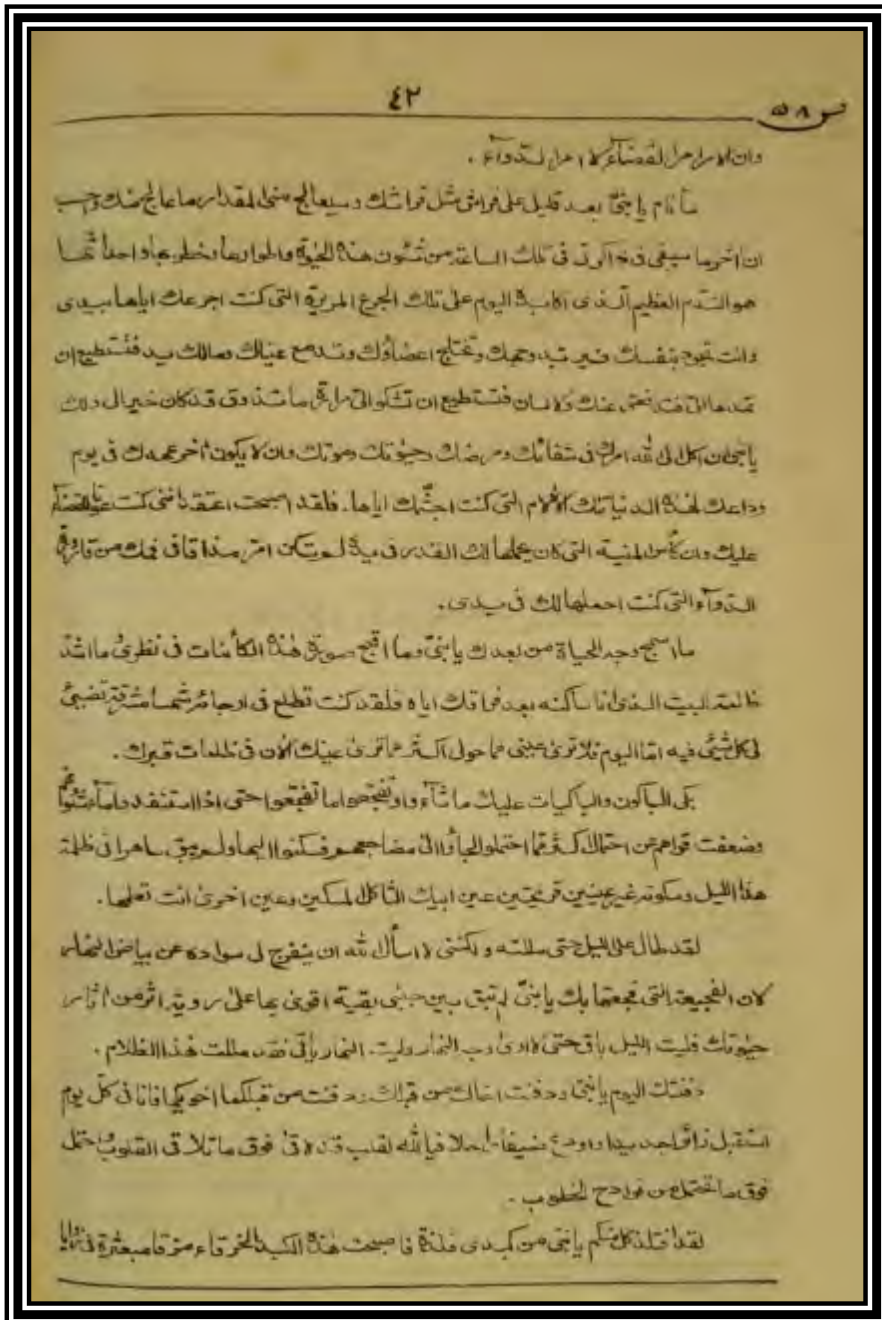 ٤٢
س ٥٨
وان الامر امر القضاء لا امر الدواء .
سأنام يا بنيّ بعد قليل على فراش مثل فراشك وسيعالج مني المقدار ما عالج منك واحسب
ان آخر ما سيبقى في ذاكرتي في تلك الساعة من شئون هذه الحيوة واطوارها وخطوبها واحداثها
هو الندم العظيم الذي اكابده اليوم على تلك الجرع المريرة التي كنت اجرعك اياها بيدي
وانت تجود بنفسك فيربد وجهك وتختلج اعضاؤك وتدمع عيناك ومالك يد فتستطيع ان
تمدها الي فتدفعني عنك ولا لسان فتستطيع ان تشكو الي مرارة ما تذوق قد كان خير لي ولك
يا بني ان اكل الى الله امرك في شفائك ومرضك وحيوتك وموتك وان لا يكون آخر عهدك في يوم
وداعك لهذه الدنيا تلك الآلام التي كنت اجشّمك اياها . فلقد اصبحت اعتقد انني كنت عونا للقضاء
عليك وان كأس المنية التي كان يحملها لك القدر في يده لم تكن امرّ مذاقا في فمك من قارورة
الدواء التي كنت احملها لك في يدي .
ما اسمج وجه الحياة من بعدك يا بنيّ وما اقبح صورة هذه الكائنات في نظري وما اشد
ظلمة البيت الذي انا ساكنه بعد فراقك اياه فلقد كنت تطلع في ارجائه شمسا مشرقة تضيئ
لي كل شيئ فيه اما اليوم فلا ترى عيني مما حولي اكثر مما ترى عينك الآن في ظلمات قبرك .
بكى الباكون والباكيات عليك ما شاءوا وتفجعوا ما تفجعوا حتى اذا استنفدوا ماء شئونهم
وضعفت قواهم عن احتمال اكثر مما احتملوا لجأوا الى مضاجعهم فسكنوا اليها ولم يبق ساهرا في ظلمة
هذا الليل وسكونه غير عينين قريحتين عين ابيك الثاكل المسكين وعين اخرى انت تعلمها .
لقد طال علي الليل حتى مللته ولكنني لا اسأل الله ان ينفرج لي سواده عن بياض النهار
لان الفجيعة التي فجعتها بك يا بنيّ لم تبق بين جنبي بقية اقوى بها على روية اثر من آثار
حيوتك فليت الليل باق حتى لا ارى وجه النهار وليت . النهار يأتي فقد مللت هذا الظلام .
دفنتك اليوم يا بنيّ ودفنت اخاك من قبلك ودفنت من قبلكما اخويكما فانا في كل يوم
استقبل زائرا جديدا واودع ضيفا راحلا فيا لله لقلب قد لاقى فوق ما تلاقي القلوب واحتمل
فوق ما تحتمل من فوادح الخطوب .
لقد افتلذ كل منكم يا بنيّ من كبدي فلذة فاصبحت هذه الكبد الخرقاء مزقا مبعثرة في زوايا